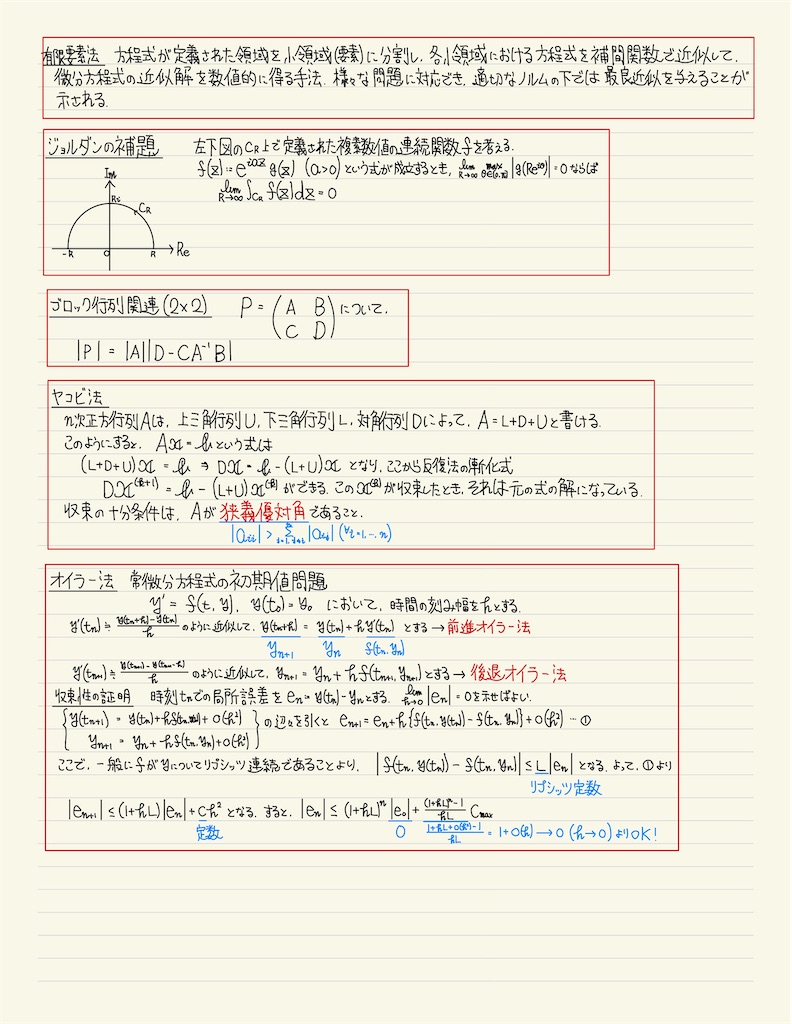 有限要素法 方程式が定義された領域を小領域(要素)に分割し、各小領域における方程式を補間関数で近似して、
微分方程式の近似解を数値的に得る手法. 様々な問題に対応でき、適切なノルムの下では最良近似を与えることが
示される.
ジョルダンの補題 左下図のCR上で定義された複素数値の連続関数fを考える.
f(z)=e^{iaz} g(z) (a>0)という式が成立するとき, lim_{R→∞} max_{θ∈[0,π]} |g(Re^{iθ})|=0ならば
lim_{R→∞} ∫_{CR} f(z)dz=0
Im
Ri
CR
-R O R Re
ブロック行列関連(2×2) P=(A B
C D)について、
|P|=|A||D-CA⁻¹B|
ヤコビ法
n次正方行列Aは、上三角行列U,下三角行列L,対角行列Dによって、A=L+D+Uと書ける.
このようにすると、Ax=bという式は
(L+D+U)x=b ⇒ Dx=b-(L+U)x となり、ここから反復法の漸化式
Dx^{(k+1)}=b-(L+U)x^{(k)}ができる.このx^{(k)}が収束したとき、それは元の式の解になっている.
収束の十分条件は、Aが狭義優対角であること.
|a_{ii}|>Σ_{j=1,j≠i}^{n}|a_{ij}| (∀i=1,…,n)
オイラー法 常微分方程式の初期値問題
y'=f(t,y), y(t₀)=y₀ において、時間の刻み幅をhとする.
y'(tn)≒(y(tn+h)-y(tn))/hのように近似して、y(tn+h)=y(tn)+hy'(tn) とする→前進オイラー法
y_{n+1} y_n f(tn,yn)
y'(t_{n+1})≒(y(t_{n+1})-y(t_{n+1}-h))/hのように近似して、y_{n+1}=y_n+hf(t_{n+1},y_{n+1})とする→後退オイラー法
収束性の証明 時刻tnでの局所誤差をen=y(tn)-ynとする. lim_{h→0}|en|=0を示せばよい.
{y(t_{n+1})=y(tn)+hf(tn,y(tn))+O(h²)
y_{n+1}=yn+hf(tn,yn)+O(h²)}の辺々を引くと e_{n+1}=en+h{f(tn,y(tn))-f(tn,yn)}+O(h²) …①
ここで、一般にfがyについてリプシッツ連続であることより、|f(tn,y(tn))-f(tn,yn)|≤L|en|となる.よって、①より
リプシッツ定数
|e_{n+1}|≤(1+hL)|en|+Ch²となる.すると、|en|≤(1+hL)^n|e₀|+((1+hL)^n-1)/(hL) Cmax
定数 0 (1+hL+O(h²)-1)/(hL)=1+O(h)→0 (h→0)よりOK!